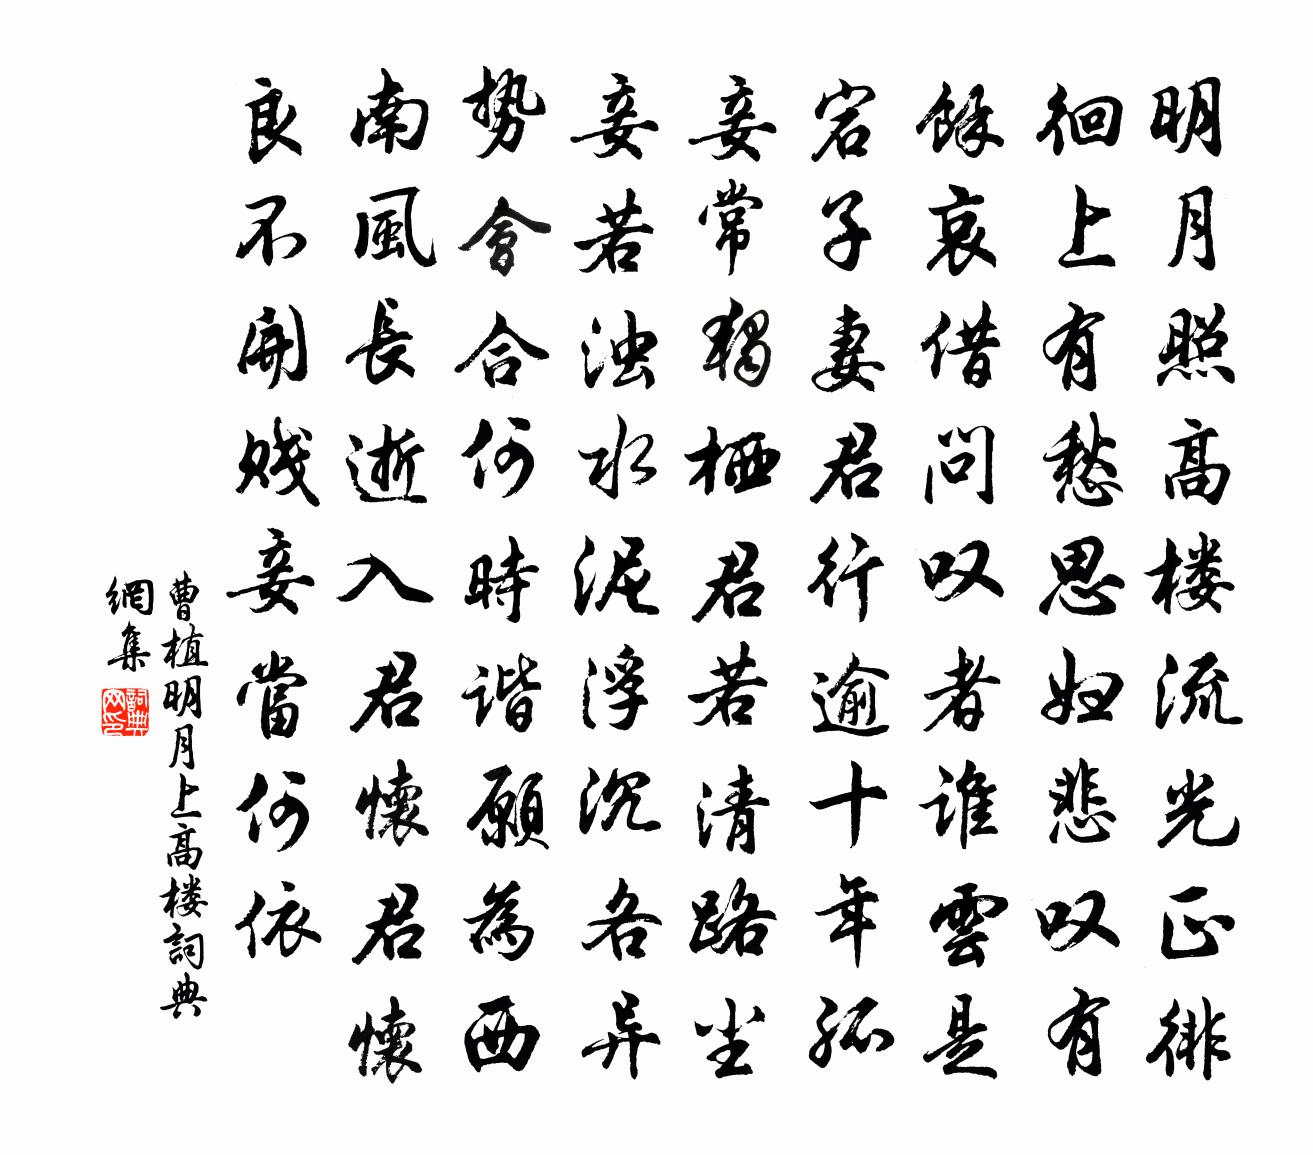 明月照高楼流光正徘
徊上有愁思妇悲叹有
餘哀借问叹者谁雲是
宕子妻君行逾十年孤
妾常独栖君若清路尘
妾若浊水泥浮沉各异
势會合何時谐願為西
南風長逝入君懷君懷
良不開贱妾當何依
曹植明月上高楼詞典
網集
詞典网